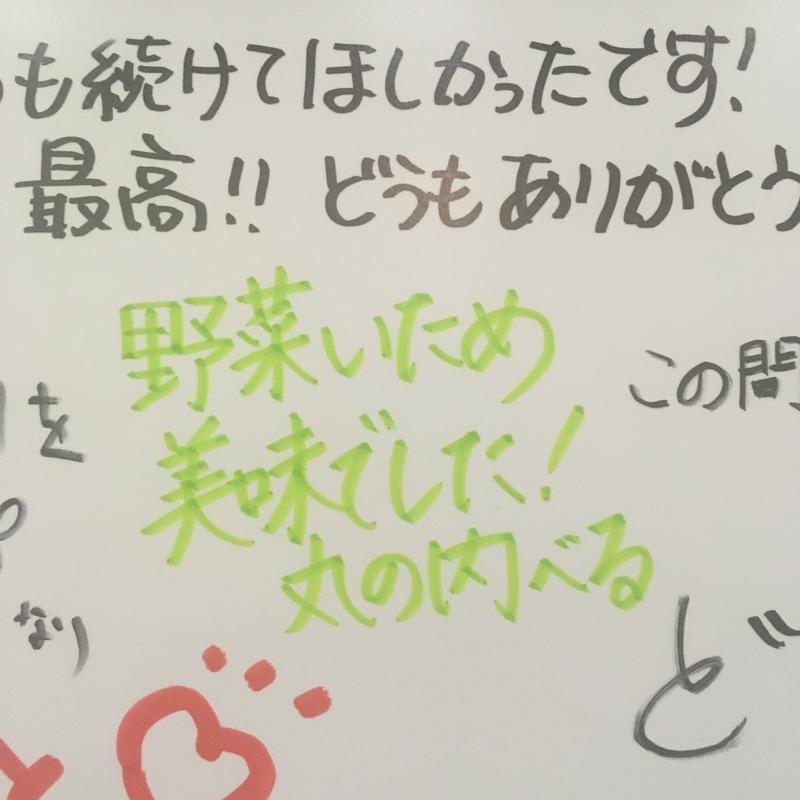 も続けてほしかったです!
最高!! どうもありがとう
野菜いため
美味でした!
丸の内べる
この問
を
なり
ど